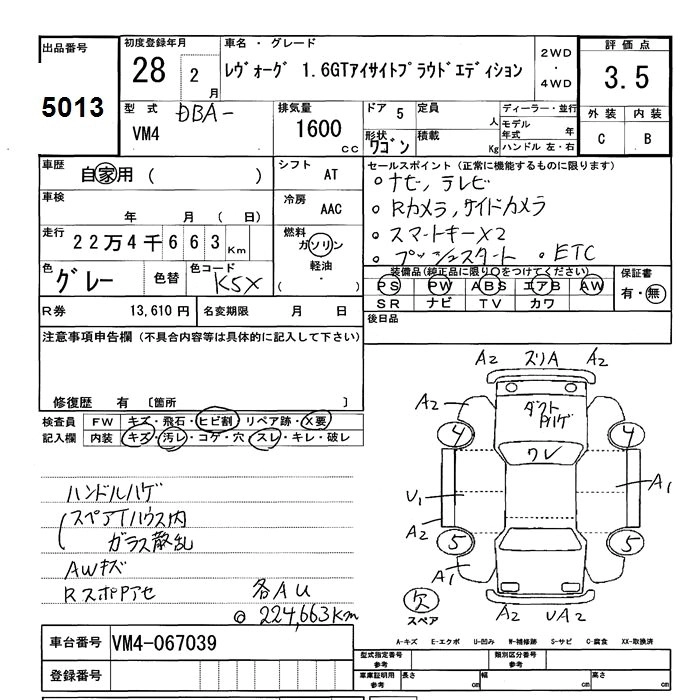 出品番号
5013
初度登録年月
28 2 月
車名・グレード
レヴォーグ 1.6GTアイサイトプラウドエディション
2WD
・
4WD
評価点
3.5
外装 内装
C B
型式
DBA-
VM4
排気量
1600
cc
ドア 5
形状
ワゴン
定員
人
積載
Kg
ディーラー・並行
モデル
年式 年
ハンドル 左・右
車歴
自家用 ( )
シフト
AT
車検
年 月 ( 日)
冷房
AAC
走行
22万4千663Km
燃料
ガソリン
軽油
( ・ )
色
グレー
色替
色コード
K5X
セールスポイント (正常に機能するものに限ります)
。ナビ, テレビ
。Rカメラ, サイドカメラ
。スマートキーX2
。プッシュスタート 。ETC
装備品(純正品に限り○をつけてください)
PS PW ABS エアB AW
SR ナビ TV カワ
保証書
有・無
後日品
R券 13,610円
名変期限 月 日
注意事項申告欄 (不具合内容等は具体的に記入して下さい)
修復歴 有 〔箇所 〕
検査員
記入欄
FW キズ・飛石・ヒビ割 リペア跡・X要
内装 キズ・汚レ・コゲ・穴・スレ・キレ・破レ
ハンドルハゲ
スペアTハウス内
ガラス散乱
AWキズ
RスポPアセ
各AU
◎ 224,663Km
A2 スリA A2
A2
ダクト
Pハゲ
4 4
ワレ
U1
A1
A2
5 5
A1
欠
スペア
A2 UA2
A-キズ E-エクボ U-凹み W-補修跡 S-サビ C-腐食 XX-取換済
車台番号 VM4-067039
登録番号
型式指定番号
参考
類別区分番号
参考
車庫証明用
参考
長さ cm
幅 cm
高さ cm